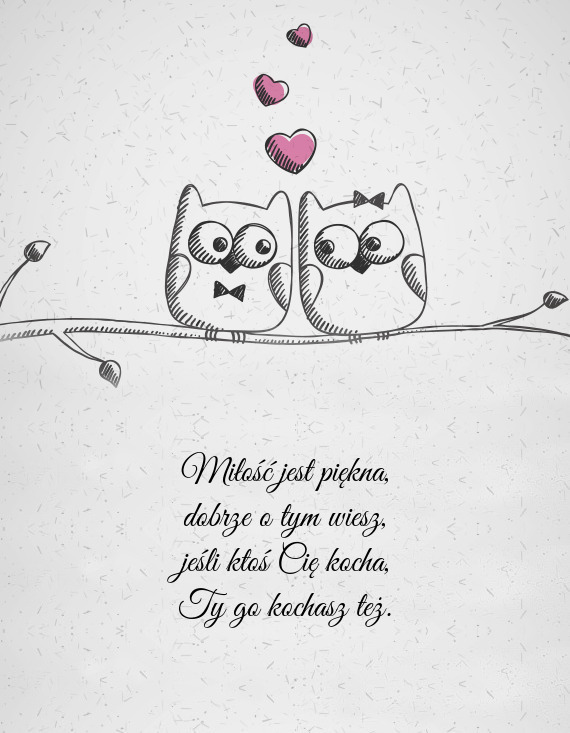 Miłość jest piękna,
dobrze o tym wiesz,
jeśli ktoś Cię kocha,
Ty go kochasz też.